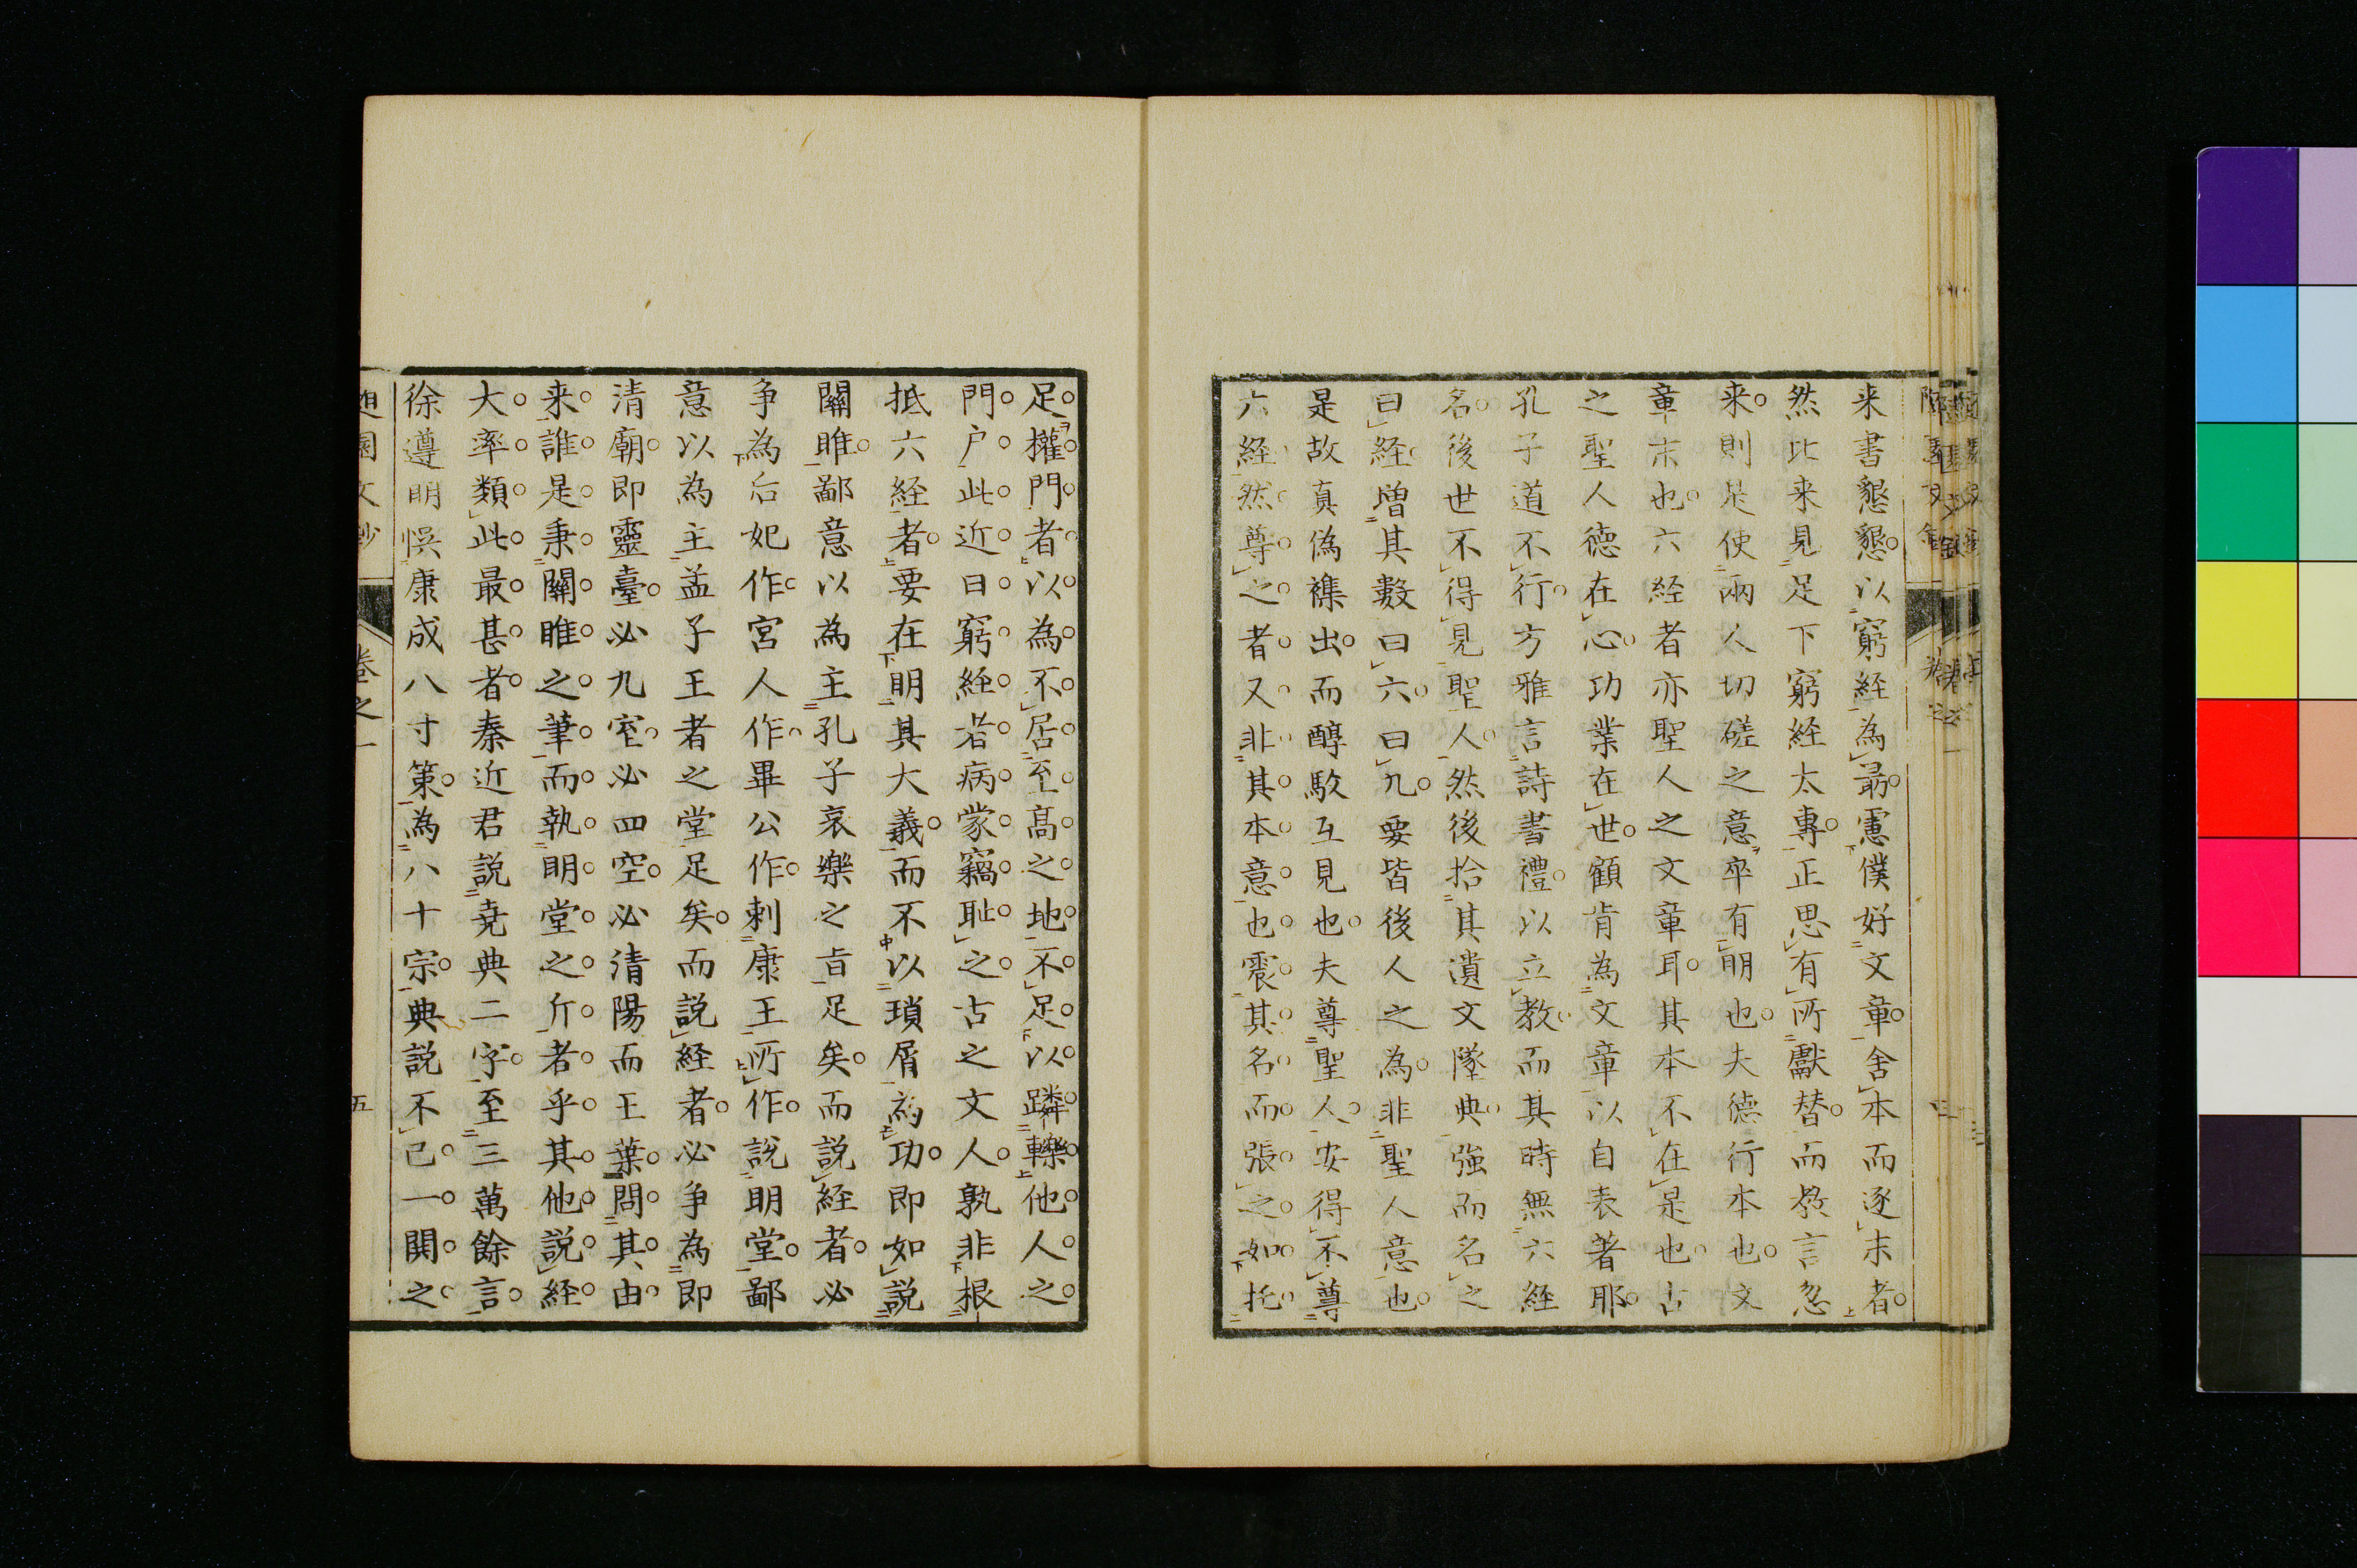 来書懇懇以窮経為最慮僕好文章舍本而逐末者
然比来見足下窮経太專正思有所獻替而教言忽
来則是使兩人切磋之意卒有明也夫德行本也文
章末也六経者亦聖人之文章耳其本不在是也古
之聖人德在心功業在世顧肯為文章以自表著耶
孔子道不行方雅言詩書禮以立教而其時無六経
名後世不得見聖人然後拾其遺文墜典強而名之
曰経増其數曰六曰九要皆後人之為非聖人意也
是故真偽襍出而醇駁互見也夫尊聖人安得不尊
六経然尊之者又非其本意也震其名而張之如托
足權門者以為不居至髙之地不足以蹸轢他人之
門户此近日窮経者病蒙竊恥之古之文人孰非根
抵六経者要在明其大義而不以瑣屑為功即如說
關雎鄙意以為主孔子哀樂之旨足矣而説経者必
争為后妃作宮人作畢公作刺康王所作説明堂鄙
意以為主孟子王者之堂足矣而説経者必争為即
清廟即靈臺必九室必四空必清陽而玉葉問其由
来誰是秉關雎之筆而執明堂之斤者乎其他説経
大率類此最甚者秦近君説堯典二字至三萬餘言
徐遵明悞康成八寸策為八十宗典説不已一閧之
隨園文鈔 卷之一 五